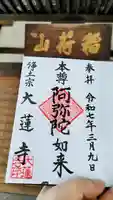 稲荷山
奉拝 令和七年三月九日
本尊 阿弥陀如来
浄土宗 大蓮寺